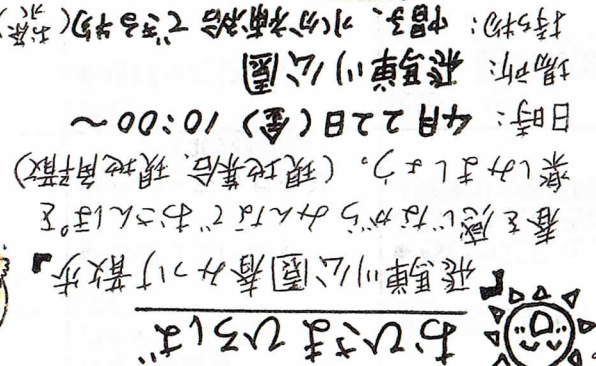 おひさまひろば
「飛鳥川公園春みつけ散歩」
春を感じながらみんなでおさんぽを
楽しみましょう。(現地集合、現地解散)
日時: 4月22日(金) 10:00〜
場所: 飛鳥川公園
持ち物: 帽子、水分補給できる物(お茶、水